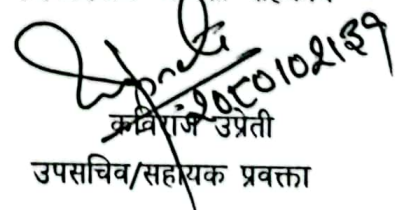 २०८०।०२।३१
कविराज उप्रेती
उपसचिव/सहायक प्रवक्ता